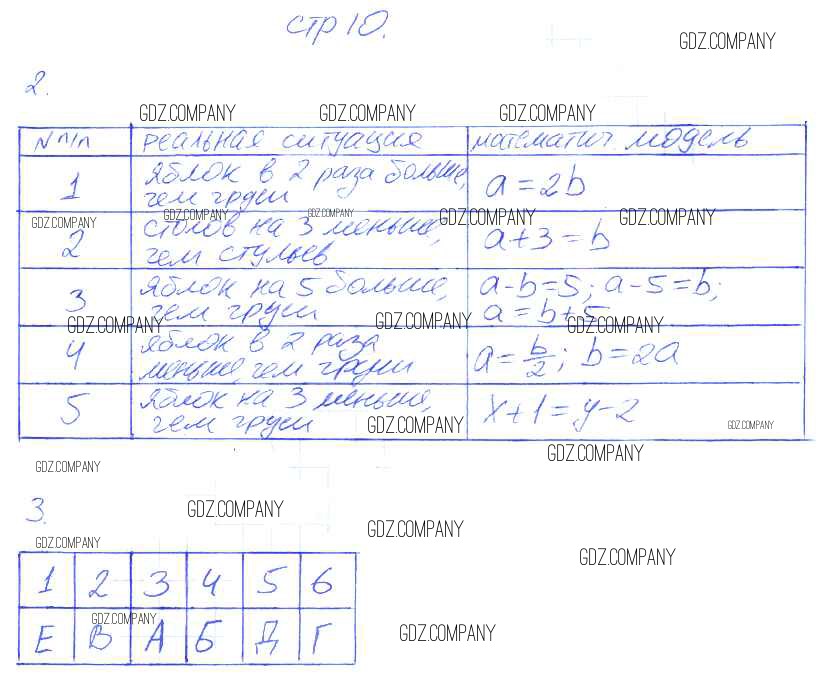 стр 10.
GDZ.COMPANY
2.
GDZ.COMPANY GDZ.COMPANY GDZ.COMPANY
N п/п реальная ситуация математич. модель
1 яблок в 2 раза больше, чем груш a = 2b
GDZ.COMPANY GDZ.COMPANY GDZ.COMPANY GDZ.COMPANY GDZ.COMPANY
2 столов на 3 меньше, чем стульев a + 3 = b
3 яблок на 5 больше, чем груш a - b = 5; a - 5 = b; a = b + 5
GDZ.COMPANY GDZ.COMPANY GDZ.COMPANY
4 яблок в 2 раза меньше, чем груш a = b/2; b = 2a
5 яблок на 3 меньше, чем груш x + 1 = y - 2
GDZ.COMPANY GDZ.COMPANY
GDZ.COMPANY
GDZ.COMPANY
3.
GDZ.COMPANY
GDZ.COMPANY
GDZ.COMPANY
GDZ.COMPANY
1 2 3 4 5 6
GDZ.COMPANY
Е В А Б Д Г
GDZ.COMPANY